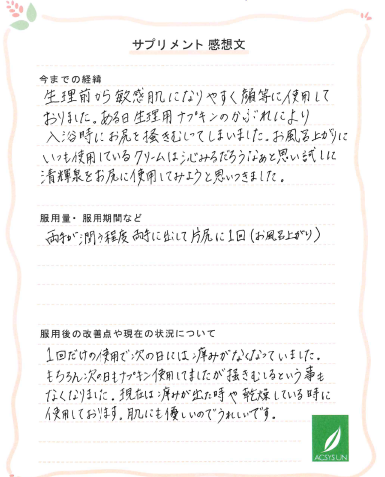 サプリメント 感想文
今までの経緯
生理前から敏感肌になりやすく顔等に使用して
おりました。ある日生理用ナプキンのかぶれにより
入浴時にお尻を掻きむしってしまいました。お風呂上がりに
いつも使用しているクリームは沁みるだろうなぁと思い試しに
清輝泉をお尻に使用してみようと思いつきました。
服用量・服用期間など
両手が潤う程度両手に出して片尻に1回(お風呂上がり)
服用後の改善点や現在の状況について
1回だけの使用で次の日には痒みがなくなっていました。
もちろん次の日もナプキン使用してましたが掻きむしるという事も
なくなりました。現在は痒みが出た時や乾燥している時に
使用しております。肌にも優しいのでうれしいです。
ACSYS UN